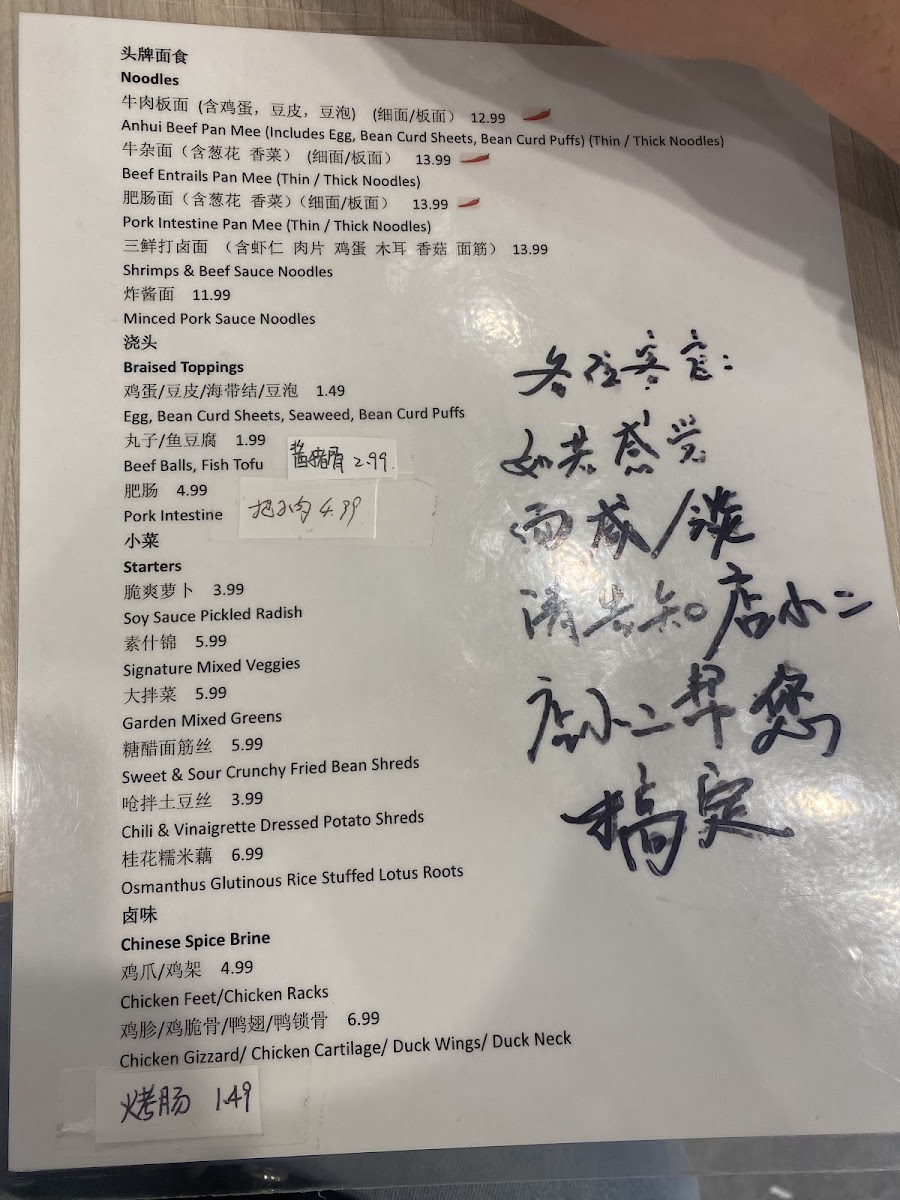 头牌面食
Noodles
牛肉板面 (含鸡蛋，豆皮，豆泡) (细面/板面) 12.99
Anhui Beef Pan Mee (Includes Egg, Bean Curd Sheets, Bean Curd Puffs) (Thin / Thick Noodles)
牛杂面（含葱花 香菜） (细面/板面) 13.99
Beef Entrails Pan Mee (Thin / Thick Noodles)
肥肠面（含葱花 香菜）（细面/板面） 13.99
Pork Intestine Pan Mee (Thin / Thick Noodles)
三鲜打卤面 （含虾仁 肉片 鸡蛋 木耳 香菇 面筋） 13.99
Shrimps & Beef Sauce Noodles
炸酱面 11.99
Minced Pork Sauce Noodles
浇头
Braised Toppings
鸡蛋/豆皮/海带结/豆泡 1.49
Egg, Bean Curd Sheets, Seaweed, Bean Curd Puffs
丸子/鱼豆腐 1.99
Beef Balls, Fish Tofu
酱猪骨 2.99
肥肠 4.99
Pork Intestine
把子肉 4.99
小菜
Starters
脆爽萝卜 3.99
Soy Sauce Pickled Radish
素什锦 5.99
Signature Mixed Veggies
大拌菜 5.99
Garden Mixed Greens
糖醋面筋丝 5.99
Sweet & Sour Crunchy Fried Bean Shreds
呛拌土豆丝 3.99
Chili & Vinaigrette Dressed Potato Shreds
桂花糯米藕 6.99
Osmanthus Glutinous Rice Stuffed Lotus Roots
卤味
Chinese Spice Brine
鸡爪/鸡架 4.99
Chicken Feet/Chicken Racks
鸡胗/鸡脆骨/鸭翅/鸭锁骨 6.99
Chicken Gizzard/ Chicken Cartilage/ Duck Wings/ Duck Neck
烤肠 1.49
各位客官：
如若感觉
面咸/淡
请告知店小二
店小二帮您
搞定